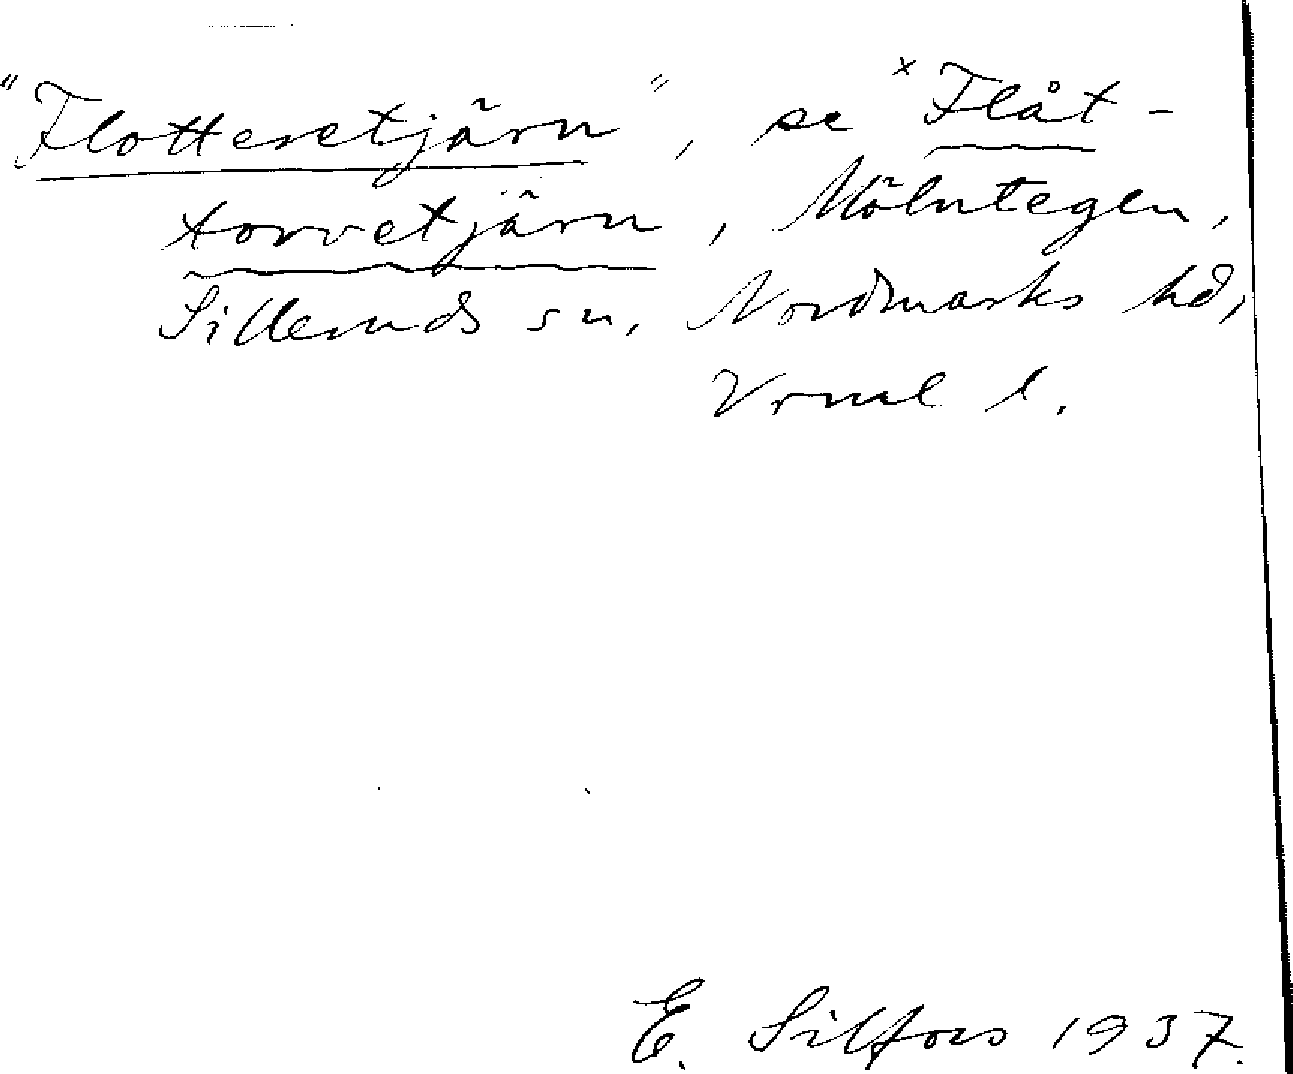 "Flotteretjärn", se ˣFlåt-
torvetjärn, Mölntegen,
Silleruds sn, Nordmarks hd,
Vrml l.
E. Silfors 1937.